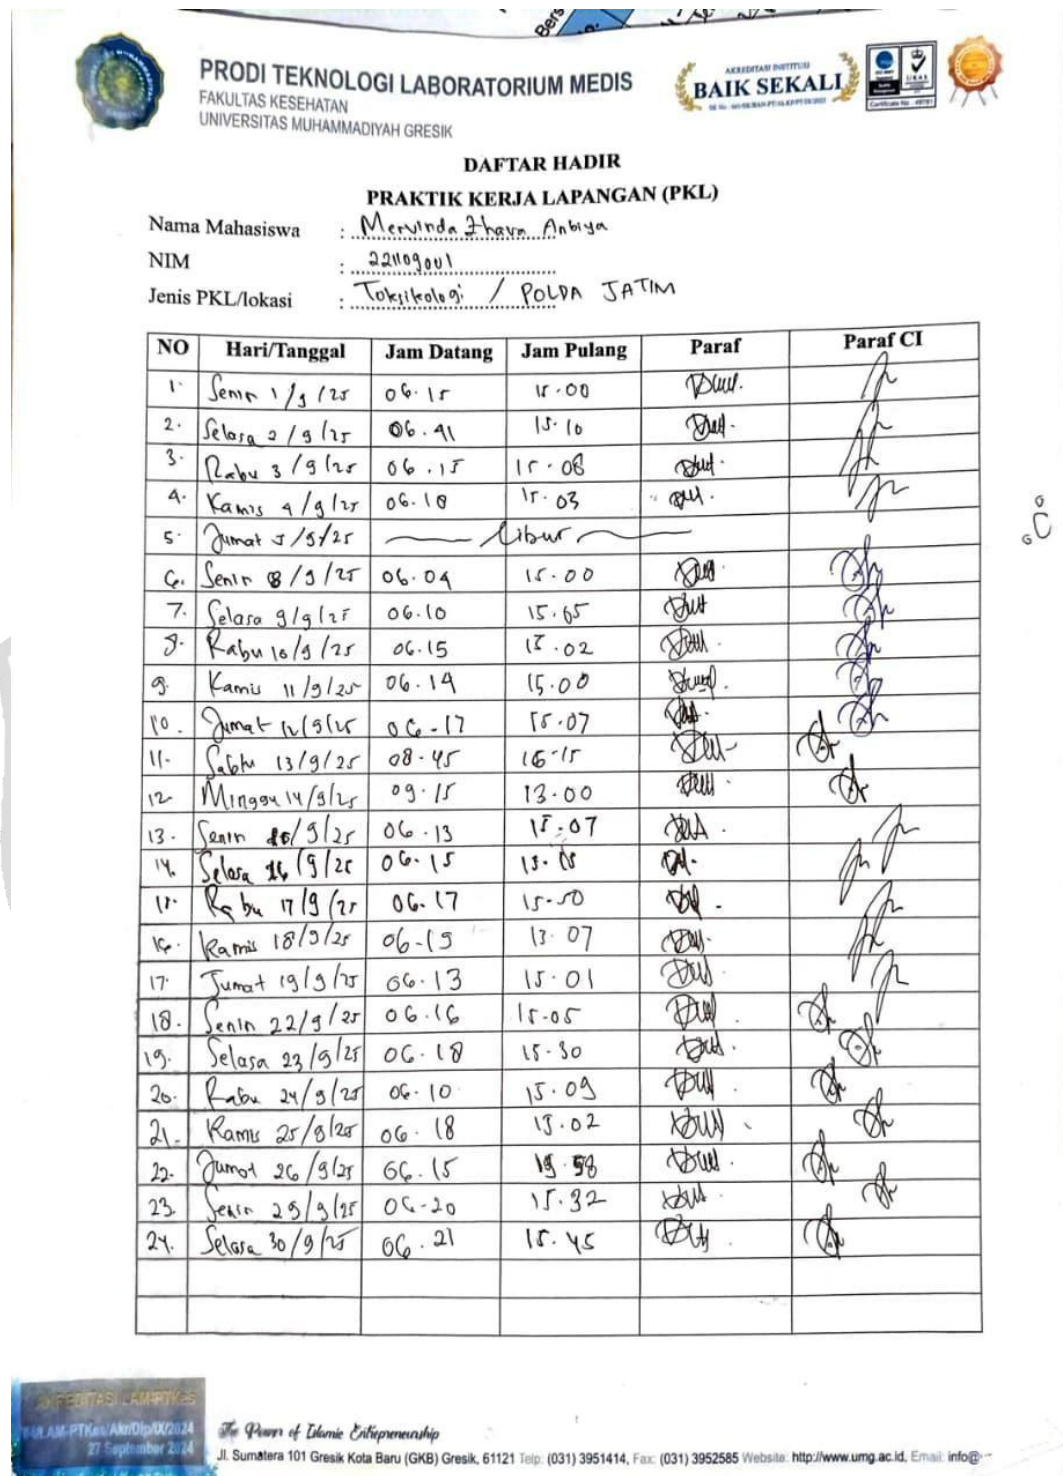 Bers
PRODI TEKNOLOGI LABORATORIUM MEDIS
FAKULTAS KESEHATAN
UNIVERSITAS MUHAMMADIYAH GRESIK
AKREDITASI INSTITUSI
BAIK SEKALI
DAFTAR HADIR
PRAKTIK KERJA LAPANGAN (PKL)
Nama Mahasiswa : Mervinda Zhava Anbiya
NIM : 221109001
Jenis PKL/lokasi : Toksikologi / POLDA JATIM
NO Hari/Tanggal Jam Datang Jam Pulang Paraf Paraf CI
1. Senin 1/9/25 06.15 15.00
2. Selasa 2/9/25 06.41 15.10
3. Rabu 3/9/25 06.15 15.08
4. Kamis 4/9/25 06.18 15.03
5. Jumat 5/9/25 Libur
6. Senin 8/9/25 06.04 15.00
7. Selasa 9/9/25 06.10 15.05
8. Rabu 10/9/25 06.15 15.02
9. Kamis 11/9/25 06.14 15.00
10. Jumat 12/9/25 06-17 15.07
11. Sabtu 13/9/25 08.45 16-15
12 Minggu 14/9/25 09.15 13.00
13. Senin 15/9/25 06.13 15.07
14. Selasa 16/9/25 06.15
15. Rabu 17/9/25 06.17 15-50
16. Kamis 18/9/25 06-19 13.07
17. Jumat 19/9/25 06.13 15.01
18. Senin 22/9/25 06.16 15-05
19. Selasa 23/9/25 06.18 15-30
20. Rabu 24/9/25 06.10 15.09
21. Kamis 25/9/25 06.18 15.02
22. Jumat 26/9/25 06.15
23. Senin 29/9/25 06-20 15.32
24. Selasa 30/9/25 06.21 15.45
AKREDITASI LAM-PTKes
LAM-PTKes/Akr/Dip/IX/2024
27 September 2024
The Power of Islamic Entrepreneurship
Jl. Sumatera 101 Gresik Kota Baru (GKB) Gresik, 61121 Telp: (031) 3951414, Fax: (031) 3952585 Website: http://www.umg.ac.id, Email: info@